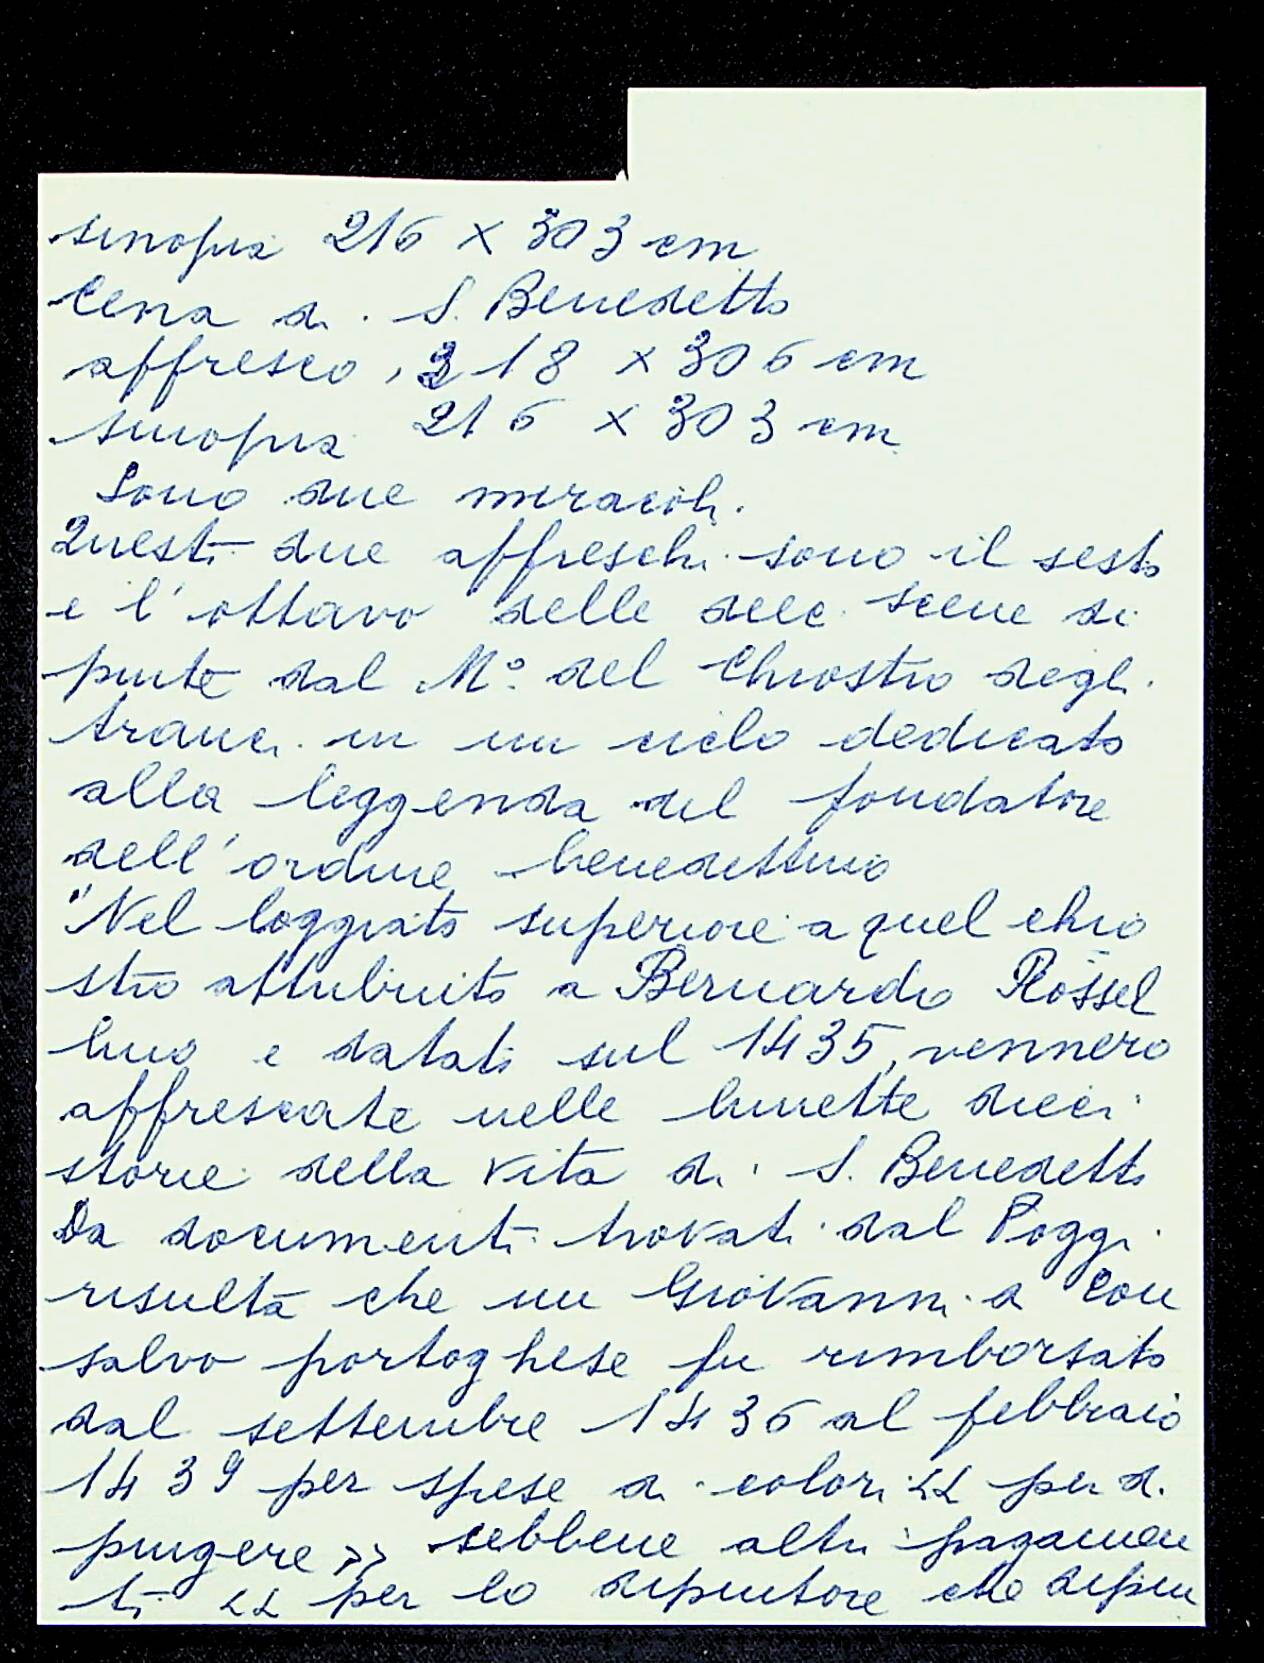 sinopia 216 x 303 cm
Cena di S. Benedetto
affresco, 218 x 306 cm
sinopia 216 x 303 cm
Sono due miracoli.
Questi due affreschi sono il sesto
e l'ottavo delle dieci scene di
pinte dal M° del Chiostro degli
Aranci in un ciclo dedicato
alla leggenda del fondatore
dell'ordine benedettino
"Nel loggiato superiore a quel chio
stro attribuito a Bernardo Rossel
lino e datati sul 1435, vennero
affrescate nelle lunette dieci
storie della vita di S. Benedetto
Da documenti trovati dal Poggi
risulta che un Giovanni a Con
salvo portoghese fu rimborsato
dal settembre 1436 al febbraio
1439 per spese di colori << per di
pingere >> sebbene altri pagamen
ti << per lo dipintore che dipin